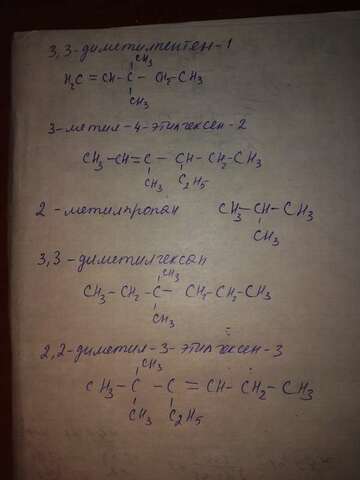 3,3-диметилпентен-1
CH₃
H₂C=CH-C-CH₂-CH₃
CH₃
3-метил-4-этилгексен-2
CH₃-CH=C-CH-CH₂-CH₃
CH₃ C₂H₅
2-метилпропан CH₃-CH-CH₃
CH₃
3,3-диметилгексан
CH₃
CH₃-CH₂-C-CH₂-CH₂-CH₃
CH₃
2,2-диметил-3-этилгексен-3
CH₃
CH₃-C-C=CH-CH₂-CH₃
CH₃ C₂H₅